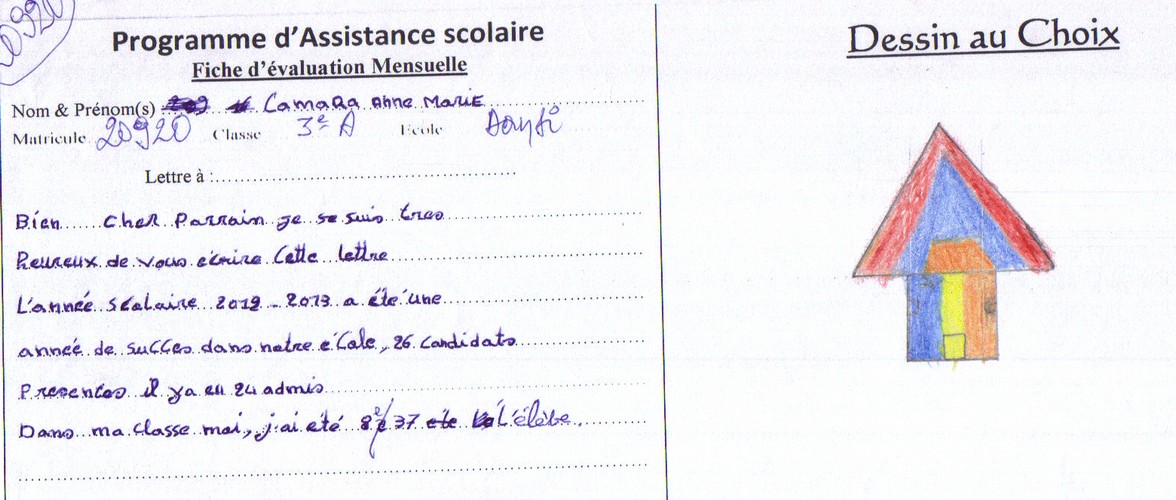 20920
Programme d'Assistance scolaire
Fiche d'évaluation Mensuelle
Nom & Prénom(s) Camara Anne Marie
Matricule 20920 Classe 3e A Ecole
Lettre à :
Bien Cher Parrain je se suis tres
heureux de vous ecrire Cette lettre
L'année scolaire 2012 - 2013 a éte une
année de succes dans notre école, 26 candidats
Presentes il ya eu 24 admis
Dans ma classe moi, j'ai été 8e/37 L'élèbe.
Dessin au Choix